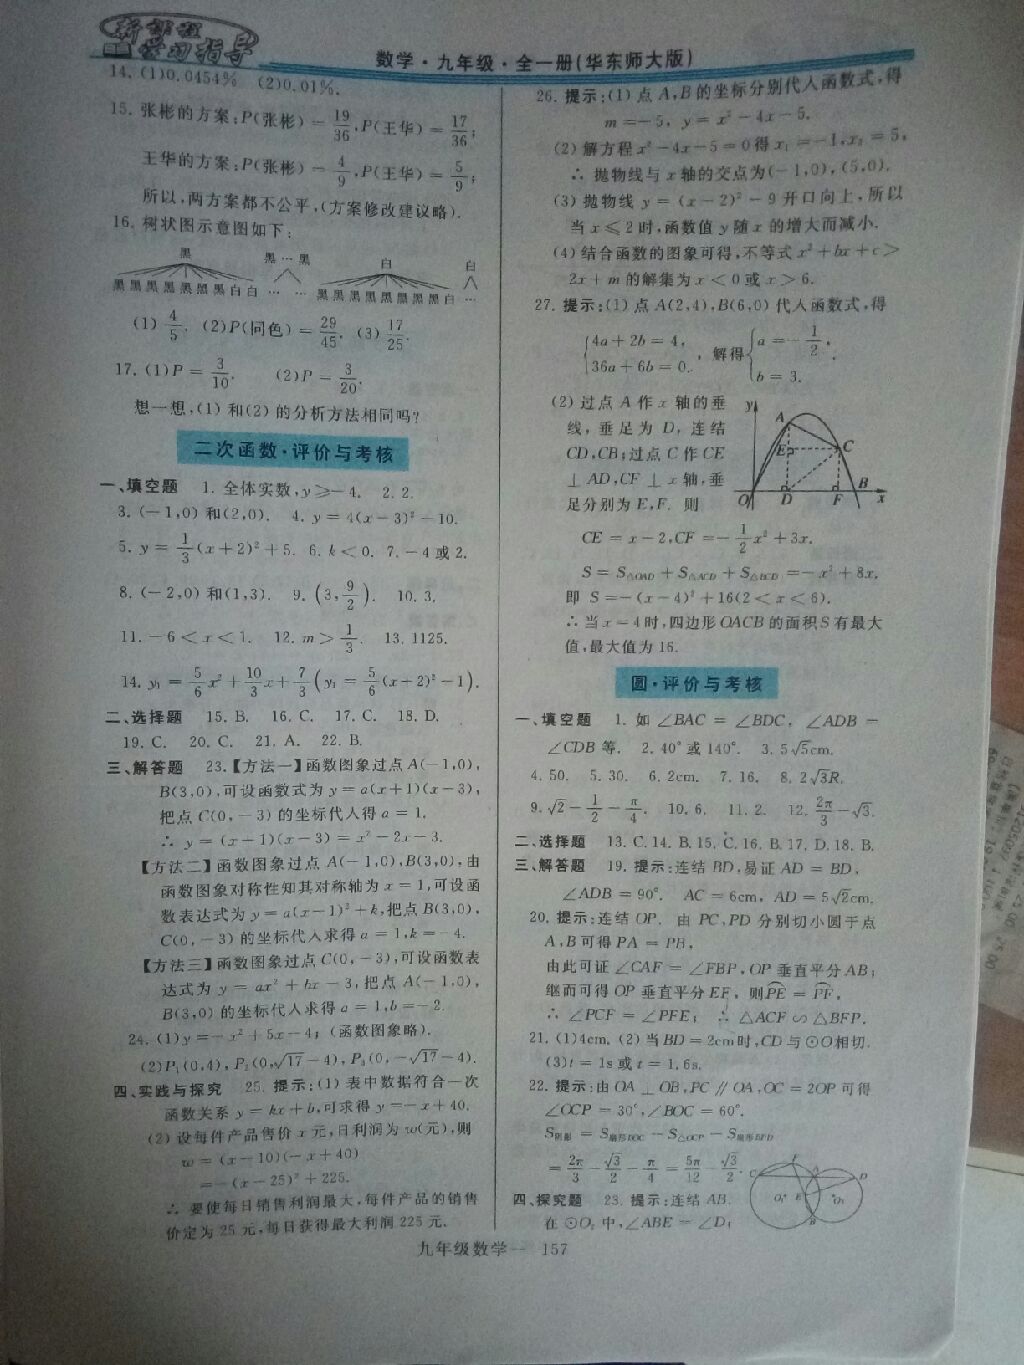 新课程
学习指导
数学·九年级·全一册(华东师大版)
14. (1)0.0454% (2)0.01%.
15. 张彬的方案:P(张彬)=19/36,P(王华)=17/36;
王华的方案:P(张彬)=4/9,P(王华)=5/9;
所以,两方案都不公平,(方案修改建议略).
16. 树状图示意图如下:
黑 黑…黑 白 白
黑黑黑黑黑黑白白 … … 黑黑黑黑黑黑黑白 …
(1) 4/5. (2)P(同色)=29/45. (3)17/25.
17. (1)P=3/10. (2)P=3/20.
想一想,(1)和(2)的分析方法相同吗?
二次函数·评价与考核
一、填空题 1. 全体实数,y≥-4. 2. 2.
3. (-1,0)和(2,0). 4. y=4(x-3)²-10.
5. y=1/3(x+2)²+5. 6. k<0. 7. -4或2.
8. (-2,0)和(1,3). 9. (3,9/2). 10. 3.
11. -6<x<1. 12. m>1/3. 13. 1125.
14. y₁=5/6x²+10/3x+7/3(y₁=5/6(x+2)²-1).
二、选择题 15. B. 16. C. 17. C. 18. D.
19. C. 20. C. 21. A. 22. B.
三、解答题 23.【方法一】函数图象过点A(-1,0),
B(3,0),可设函数式为y=a(x+1)(x-3),
把点C(0,-3)的坐标代人得a=1.
∴ y=(x+1)(x-3)=x²-2x-3.
【方法二】函数图象过点A(-1,0),B(3,0),由
函数图象对称性知其对称轴为x=1,可设函
数表达式为y=a(x-1)²+k,把点B(3,0),
C(0,-3)的坐标代人求得a=1,k=-4.
【方法三】函数图象过点C(0,-3),可设函数表
达式为y=ax²+bx-3,把点A(-1,0),
B(3,0)的坐标代人求得a=1,b=-2.
24. (1)y=-x²+5x-4; (函数图象略).
(2)P₁(0,4), P₂(0,√17-4), P₃(0,-√17-4).
四、实践与探究 25. 提示:(1)表中数据符合一次
函数关系y=kx+b,可求得y=-x+40.
(2)设每件产品售价x元,日利润为w(元),则
w=(x-10)(-x+40)
=-(x-25)²+225.
∴ 要使每日销售利润最大,每件产品的销售
价定为25元,每日获得最大利润225元.
26. 提示:(1)点A,B的坐标分别代人函数式,得
m=-5, y=x²-4x-5.
(2)解方程x²-4x-5=0得x₁=-1,x₂=5,
∴ 抛物线与x轴的交点为(-1,0),(5,0).
(3)抛物线y=(x-2)²-9开口向上,所以
当x≤2时,函数值y随x的增大而减小.
(4)结合函数的图象可得,不等式x²+bx+c>
2x+m的解集为x<0或x>6.
27. 提示:(1)点A(2,4),B(6,0)代人函数式,得
{4a+2b=4, 36a+6b=0. ,解得{a=-1/2, b=3.
(2)过点A作x轴的垂
线,垂足为D,连结
CD,CB;过点C作CE
⊥AD,CF⊥x轴,垂
足分别为E,F. 则
y A E C O D F B x
CE=x-2,CF=-1/2x²+3x.
S=S△OAD+S△ACD+S△BCD=-x²+8x,
即 S=-(x-4)²+16(2<x<6).
∴ 当x=4时,四边形OACB的面积S有最大
值,最大值为16.
圆·评价与考核
一、填空题 1. 如∠BAC=∠BDC, ∠ADB=
∠CDB等. 2. 40°或140°. 3. 5√5cm.
4. 50. 5. 30. 6. 2cm. 7. 16. 8. 2√3R.
9. √2-1/2-π/4. 10. 6. 11. 2. 12. 2π/3-√3.
二、选择题 13. C. 14. B. 15. C. 16. B. 17. D. 18. B.
三、解答题 19. 提示:连结BD,易证AD=BD,
∠ADB=90°. AC=6cm, AD=5√2cm.
20. 提示:连结OP. 由PC,PD分别切小圆于点
A,B可得PA=PB,
由此可证∠CAF=∠FBP,OP垂直平分AB;
继而可得OP垂直平分EF,则PE=PF,
∴ ∠PCF=∠PFE; ∴ △ACF∽△BFP.
21. (1)4cm. (2)当BD=2cm时,CD与⊙O相切.
(3)t=1s或t=1.6s.
22. 提示:由OA⊥OB,PC∥OA,OC=2OP可得
∠OCP=30°,∠BOC=60°.
S阴影=S扇形BOC-S△OCP-S扇形BFD
=2π/3-√3/2-π/4=5π/12-√3/2.
四、探究题 23. 提示:连结AB.
在⊙O₂中,∠ABE=∠D;
C A D O₁ E O₂ B
九年级数学— 157